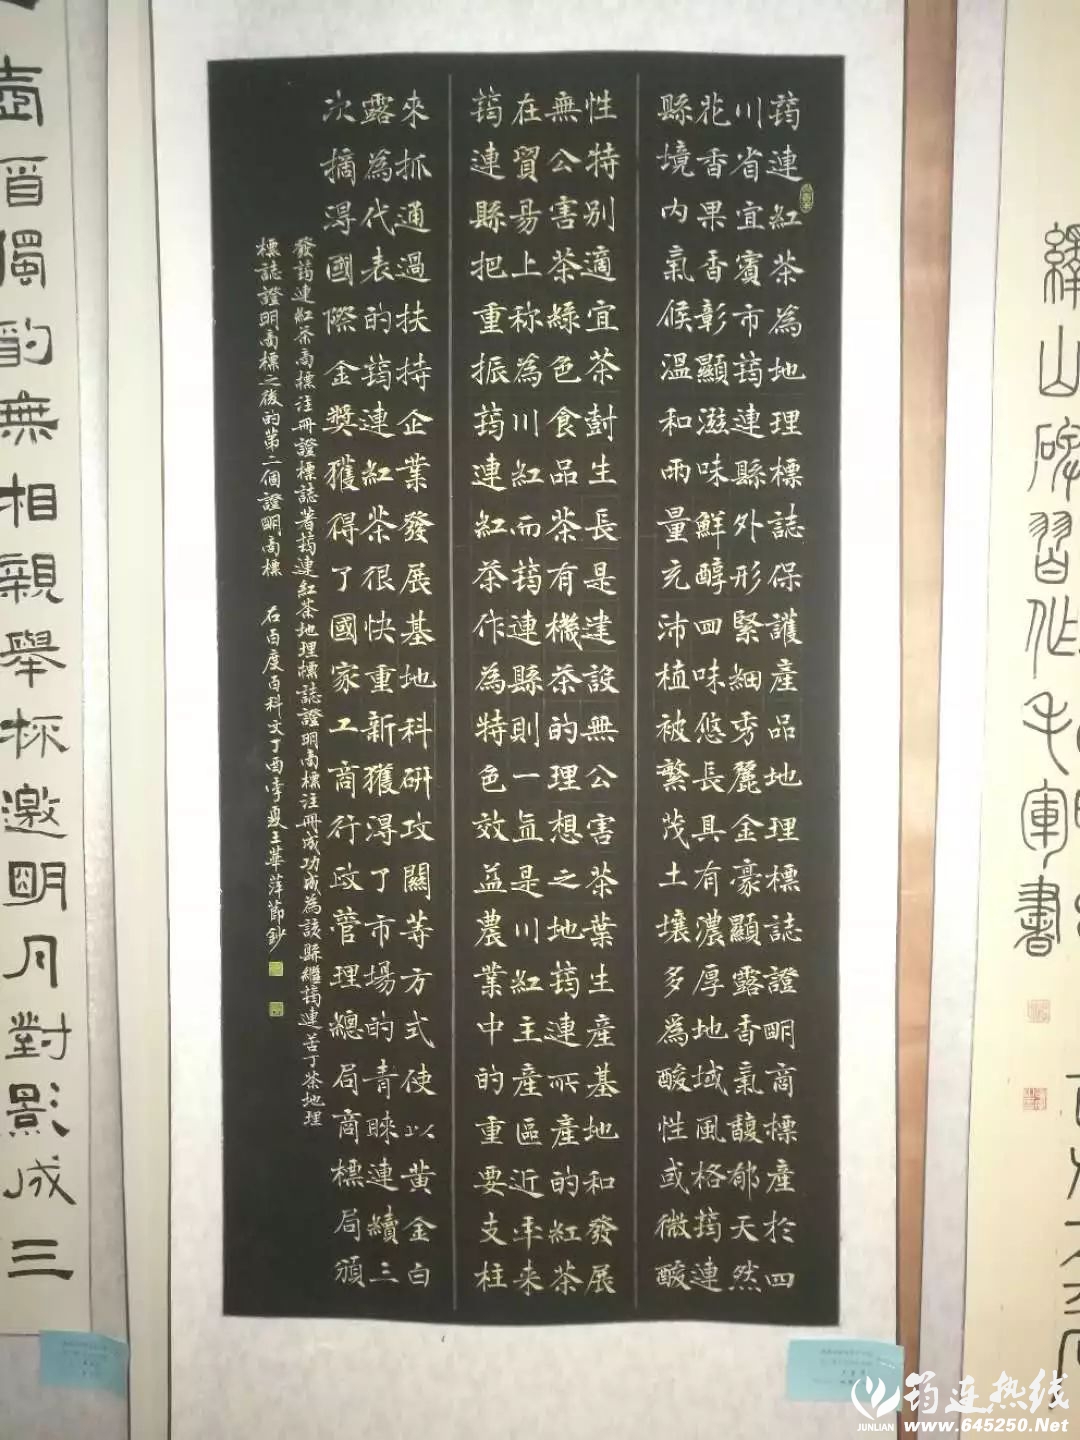 筠連紅茶為地理標誌保護產品地理標誌證明商標產於四
川省宜賓市筠連縣外形緊細秀麗金豪顯露香氣馥郁天然
花香果香彰顯滋味鮮醇回味悠長具有濃厚地域風格筠連
縣境内氣候温和雨量充沛植被繁茂土壤多為酸性或微酸
性特别適宜茶樹生長是建設無公害茶葉生產基地和發展
無公害茶綠色食品茶有機茶的理想之地筠連所產的紅茶
在貿易上称為川紅而筠連縣則一直是川紅主產區近年来
筠連縣把重振筠連紅茶作為特色效益農業中的重要支柱
來抓通過扶持企業發展基地科研攻關等方式使以黄金白
露為代表的筠連紅茶很快重新獲得了市場的青睞連續三
次摘得國際金獎獲得了國家工商行政管理總局商標局頒
發筠連紅茶商標注冊證標誌著筠連紅茶地理標誌證明商標注冊成功成為該縣繼筠連苦丁茶地理
標誌證明商標之後的第二個證明商標 右百度百科文丁酉季夏王華萍節鈔
壺酒獨酌無相親舉杯邀明月對影成三
繹山碑習作毛軍書
筠连热线
JUNLIAN
www.645250.Net